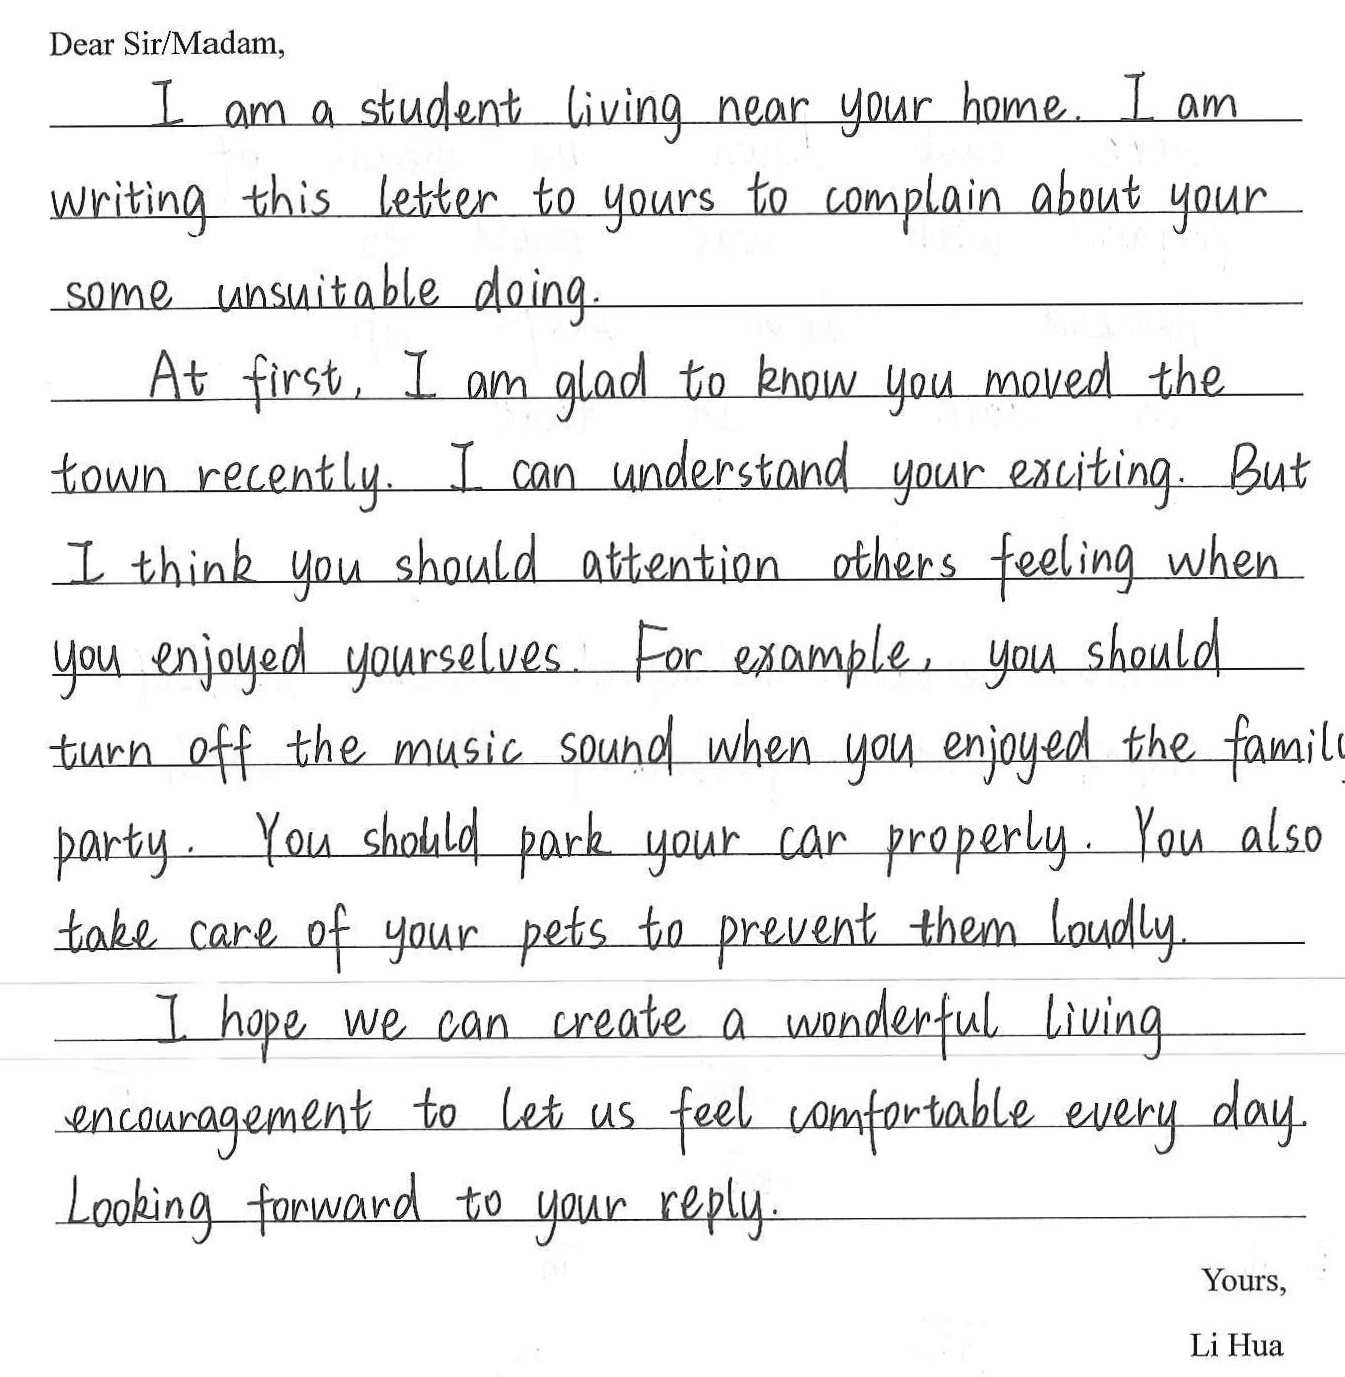 Dear Sir/Madam,
I am a student living near your home. I am
writing this letter to yours to complain about your
some unsuitable doing.
At first, I am glad to know you moved the
town recently. I can understand your exciting. But
I think you should attention others feeling when
you enjoyed yourselves. For example, you should
turn off the music sound when you enjoyed the family
party. You should park your car properly. You also
take care of your pets to prevent them loudly.
I hope we can create a wonderful living
encouragement to let us feel comfortable every day.
Looking forward to your reply.
Yours,
Li Hua